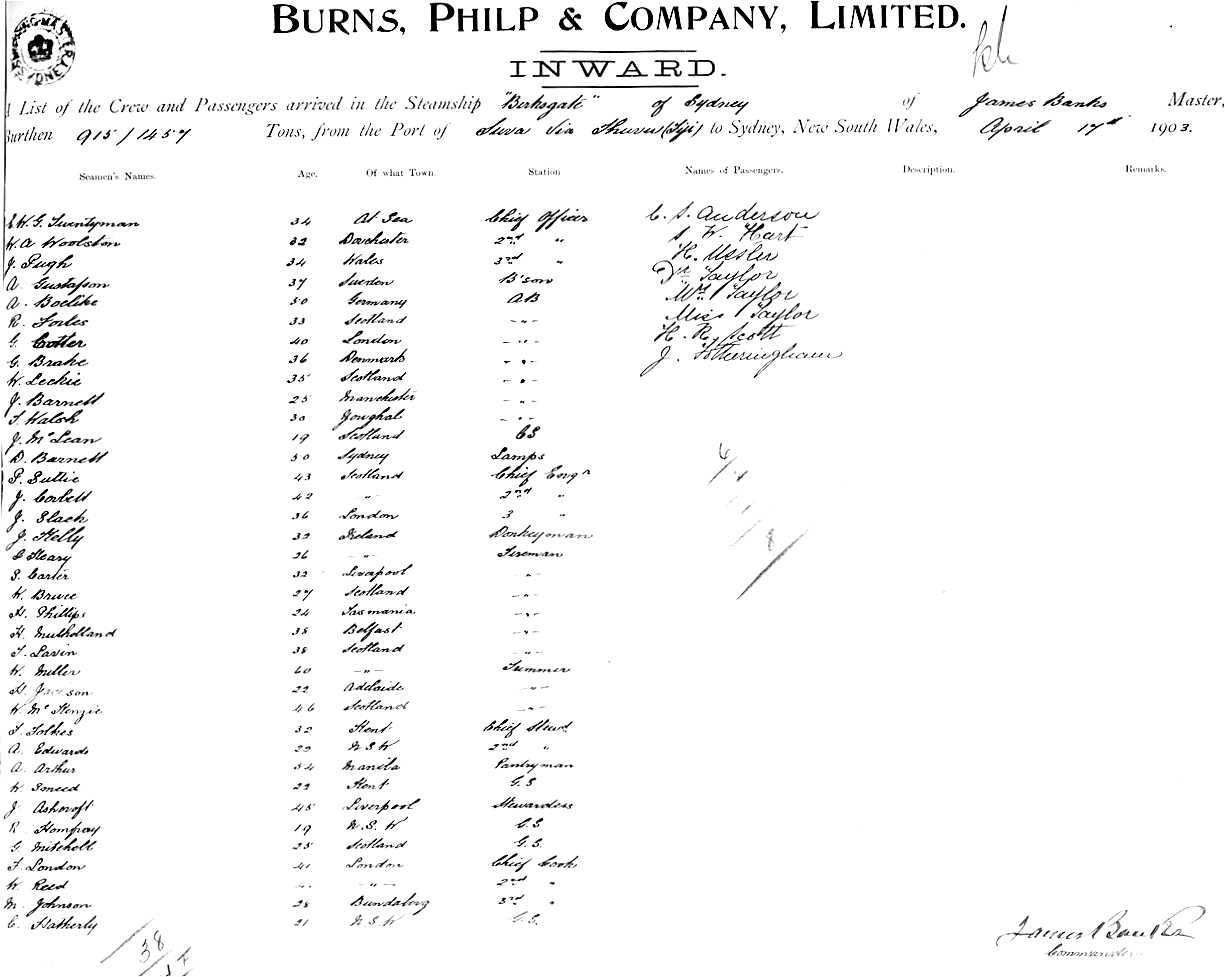 BURNS, PHILP & COMPANY, LIMITED.
INWARD.
A List of the Crew and Passengers arrived in the Steamship "Birksgate" of Sydney of James Banks Master,
Burthen 915/1457 Tons, from the Port of Suva via (Fiji) to Sydney, New South Wales, April 17th 1903.
Seamen's Names. Age. Of what Town. Station Names of Passengers. Description. Remarks.
E. W. G. Twentyman 34 At Sea Chief Officer C. S. Anderson
W. A Woolston 32 Dorchester 2nd " S. W. Hart
J. Pugh 34 Wales 3rd " H.
A. Gustafson 37 Sweden B'son Dr Taylor
A. Boelike 50 Germany AB Mrs Taylor
R. 33 Scotland -"- Miss Taylor
G. Cotter 40 London -"- H. R. Scott
G. Brake 36 Denmark -"- J. Fotheringham
W. Leckie 35 Scotland -"-
J. Barnett 25 Manchester -"-
T. Walsh 30 Youghal -"-
J. McLean 19 Scotland
D. Barnett 50 Sydney Lamps
P. Suttie 43 Scotland Chief Engr
J. Corbett 42 -"- 2nd "
J. Slack 36 London 3 "
J. Kelly 32 Ireland Donkeyman
Heary 26 -"- Fireman
S. Carter 32 Liverpool -"-
W. Bruce 27 Scotland -"-
H. Phillips 24 Tasmania -"-
H. Mulholland 38 Belfast -"-
T. Lavin 38 Scotland -"-
W. Miller 60 -"- Trimmer
H. Jackson 22 Adelaide -"-
W. McKenzie 46 Scotland -"-
F. 32 Kent Chief Stewd
A. Edwards 22 N.S.W 2nd "
A. Arthur 54 Manila Pantryman
W Smeed 22 Kent G.S
J Ashcroft 45 Liverpool Stewardess
R 19 N.S.W
G. Mitchell 25 Scotland G.S.
F. London 41 London Chief Cook
W. Reed -"- 2nd "
M. Johnson 28 Bundaberg 3rd "
C. Hatherly 21 N.S.W G.S.
38
James Banks
Commander